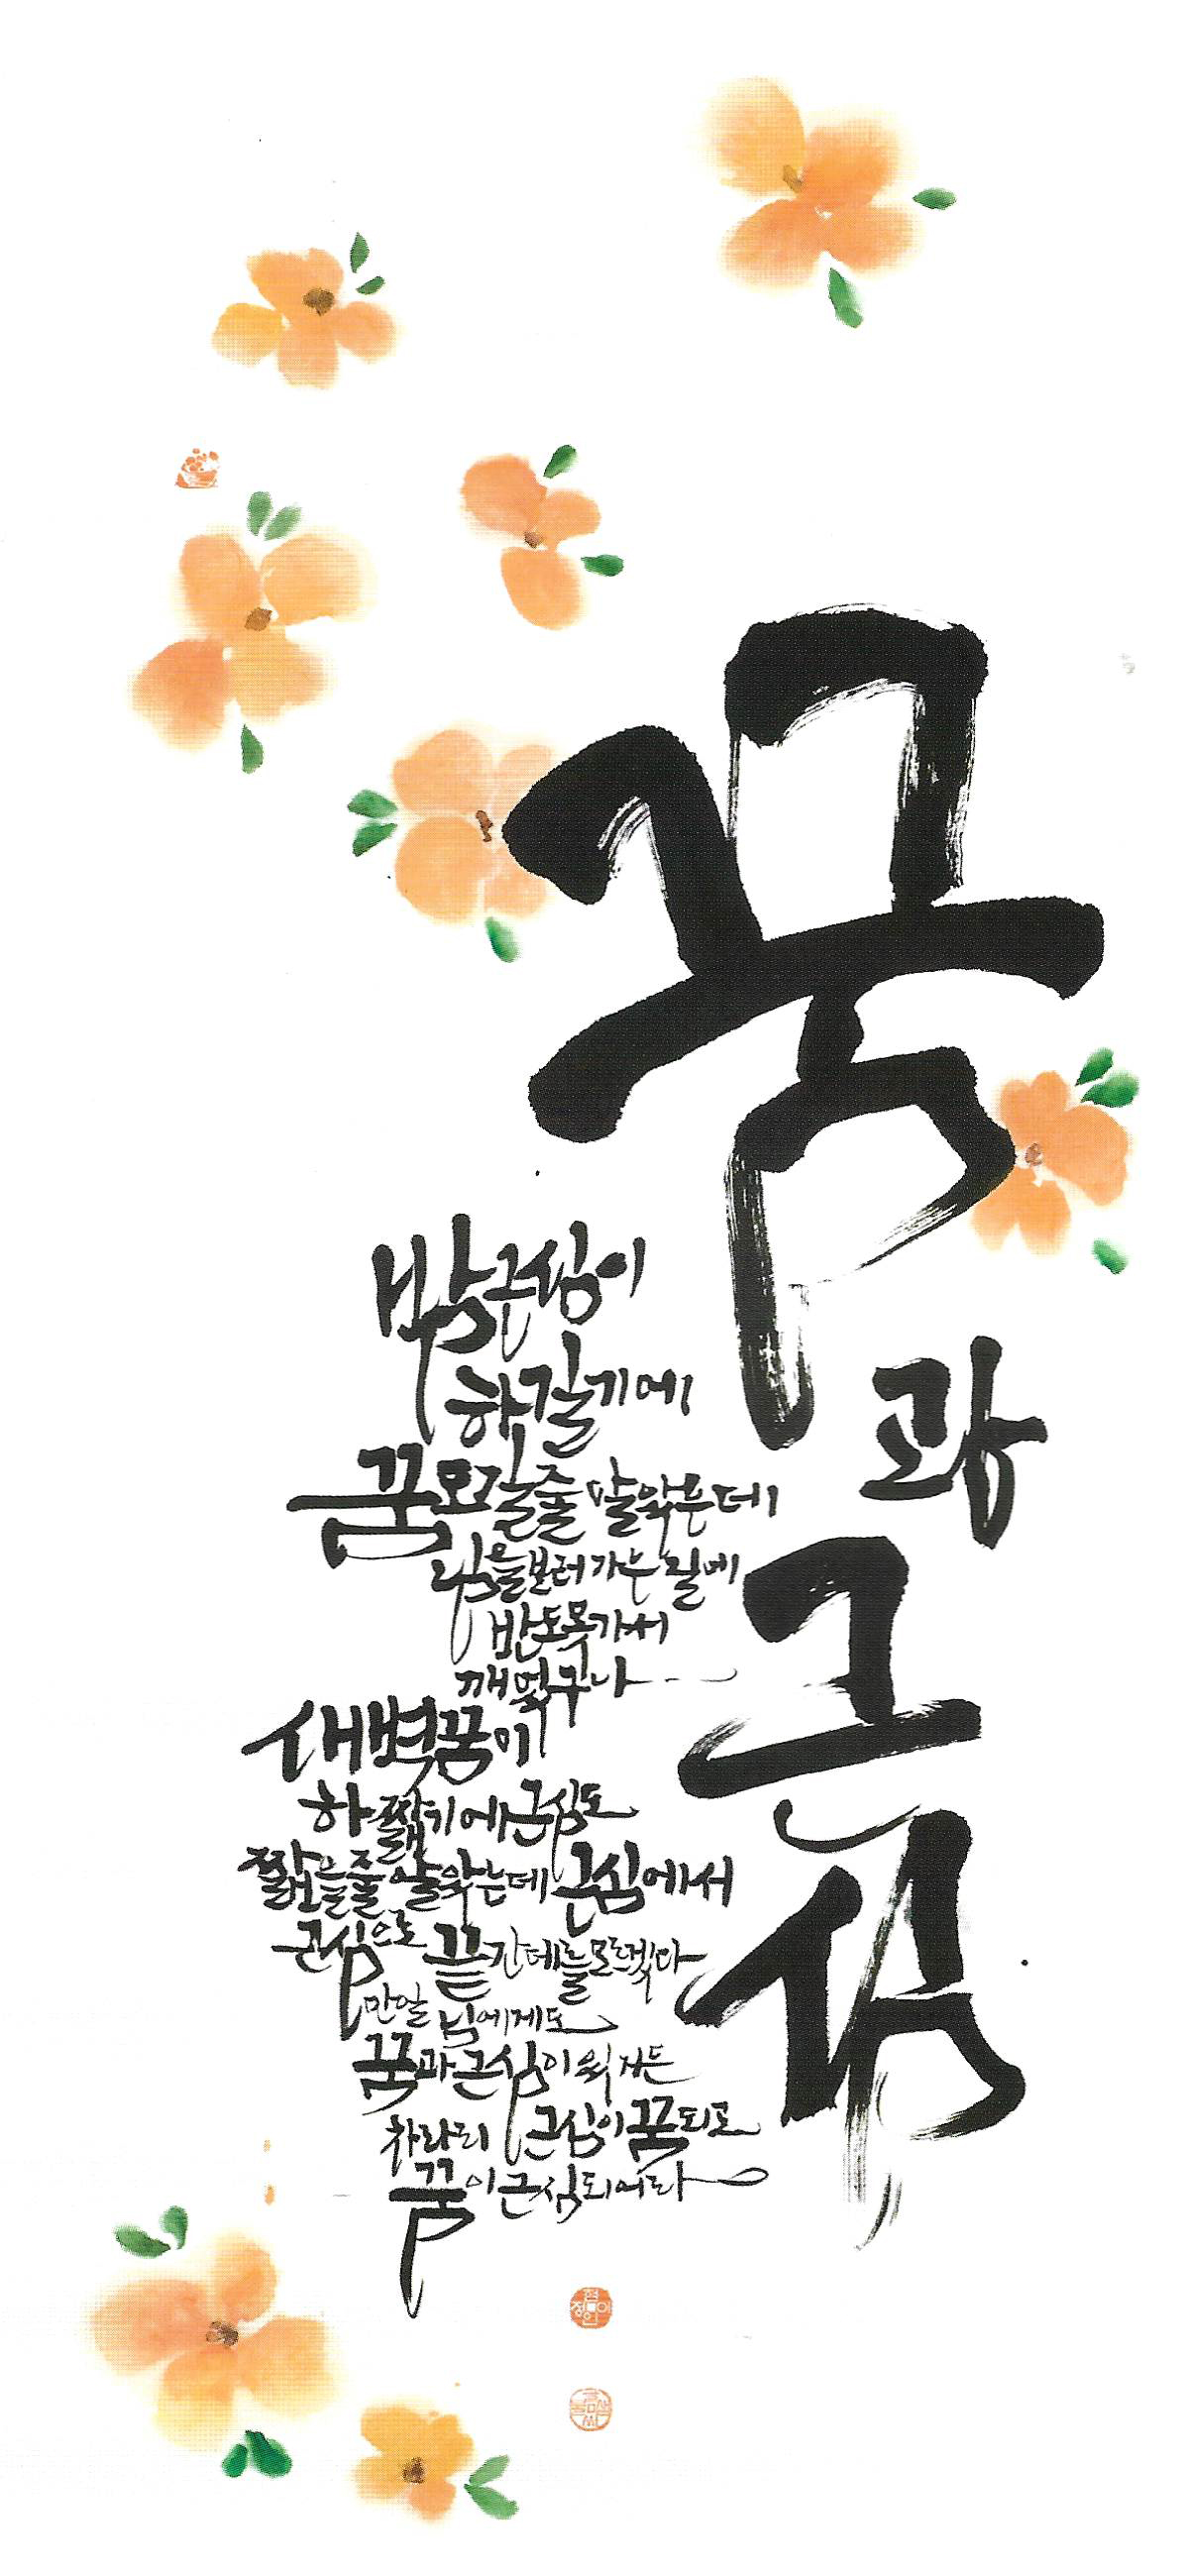 꿈
과
근
심
밤근심이
하길기에
꿈도길줄 알았는데
님을보러가는길에
반도못가서
깨었구나
새벽꿈이
하짧기에근심도
짧을줄알았는데 근심에서
근심으로 끝간데를모르겠다
만일 님에게도
꿈과근심이있거든
차라리 근심이꿈되고
꿈이근심되어라